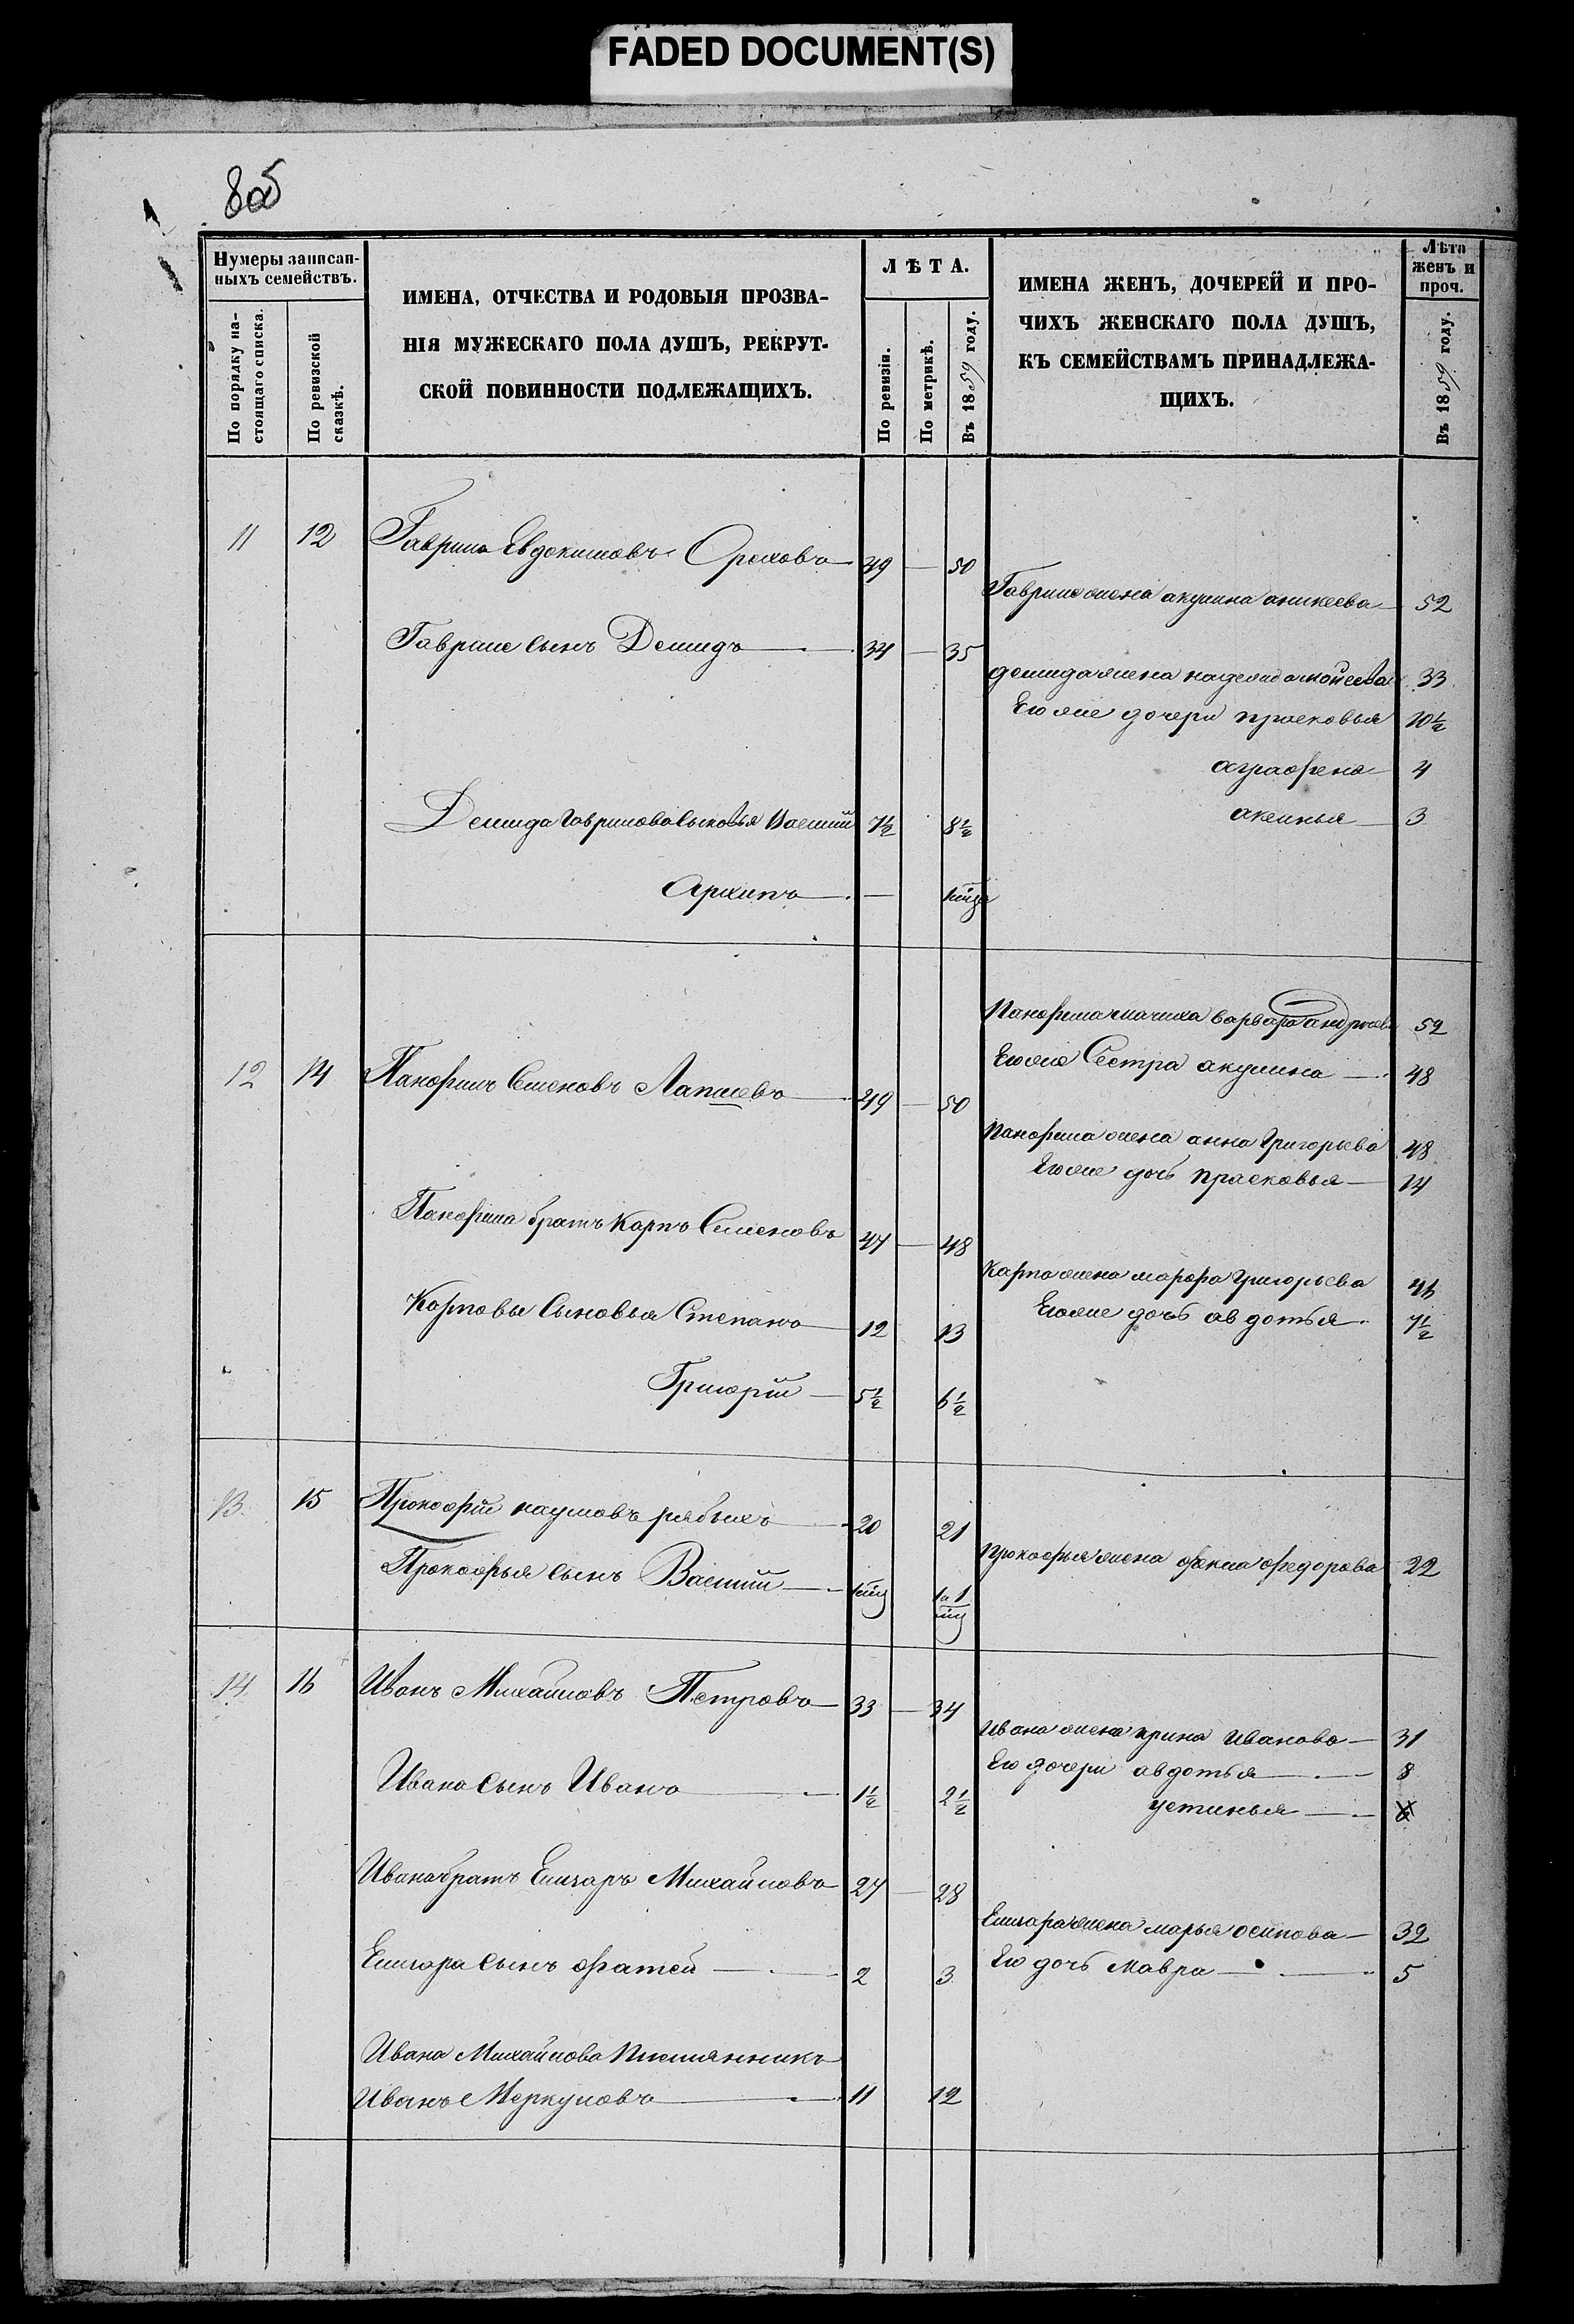 FADED DOCUMENT(S)
8об
Нумеры записан-
ныхъ семействъ.
По порядку на-
стоящаго списка.
По ревизской
сказкѣ.
ИМЕНА, ОТЧЕСТВА И РОДОВЫЯ ПРОЗВА-
НІЯ МУЖЕСКАГО ПОЛА ДУШЪ, РЕКРУТ-
СКОЙ ПОВИННОСТИ ПОДЛЕЖАЩИХЪ.
ЛѢТА.
По ревизіи.
По метрикѣ.
Въ 1859 году.
ИМЕНА ЖЕНЪ, ДОЧЕРЕЙ И ПРО-
ЧИХЪ ЖЕНСКАГО ПОЛА ДУШЪ,
КЪ СЕМЕЙСТВАМЪ ПРИНАДЛЕЖА-
ЩИХЪ.
Лѣта
женъ и
проч.
Въ 1859 году.
11 12 Гаврило Евдокимовъ Ореховъ 49 — 50
Гаврилы жена акулина аникеева 52
Гаврилы сынъ Демидъ 34 — 35
демида жена надежда мойсева 33
Его же дочери прасковья 10½
аграфена 4
Демида Гаврилова сыновья Василий 7½ 8½
аксинья 3
Архипъ —
Панфила мачиха варвара андреева 52
Его же Сестра акулина 48
12 14 Панфилъ Семеновъ Лапшевъ 49 — 50
Панфила жена анна Григорьева 48
Его же дочь прасковья 14
Панфила братъ Карпъ Семеновъ 47 — 48
Карпа жена марфа Григорьева 46
Карповы Сыновья Степанъ 12 13
Его же дочь авдотья 7½
Григорій 5½ 6½
13 15 Прокофій наумовъ рябыхъ 20 21
Прокофья жена фекла федорова 22
Прокофья сынъ Василій
14 16 Иванъ Михайловъ Петровъ 33 — 34
Ивана жена ирина Иванова 31
Его дочери авдотья 8
Ивана сынъ Иванъ 1½ 2½
устинья 6
Ивана братъ Елизаръ Михайловъ 27 — 28
Елизара жена марья осипова 32
Елизара сынъ фатей 2 3
Его дочь Мавра 5
Ивана Михайлова племянникъ
Иванъ Меркуловъ 11 12